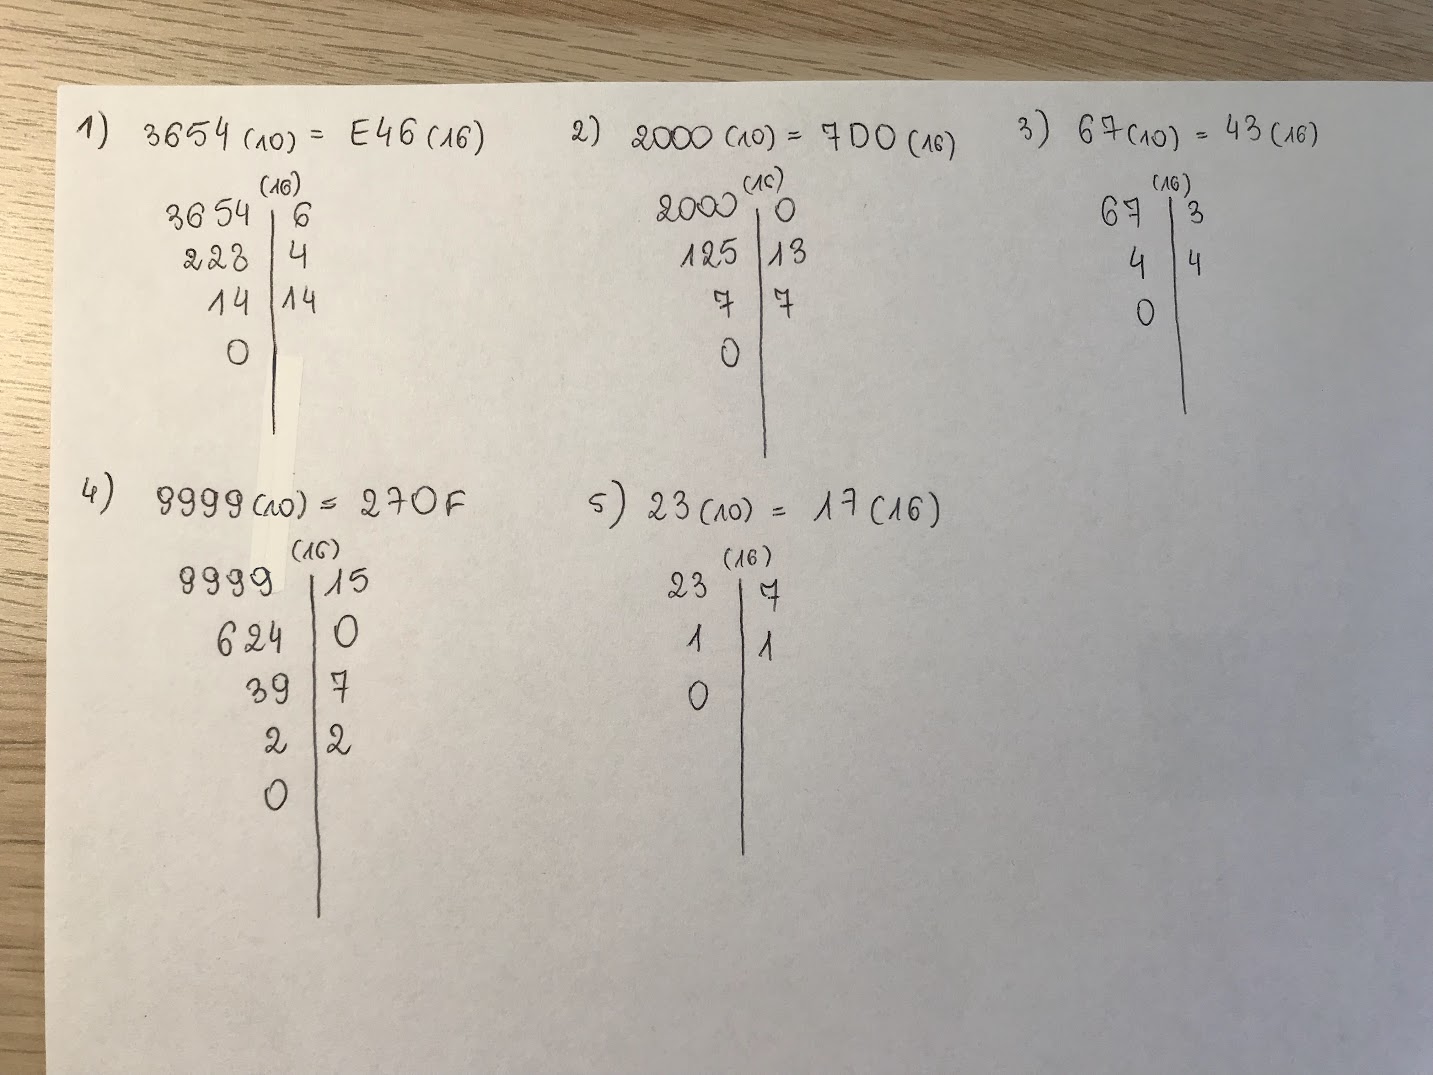 1) 3654 (10) = E46 (16)
(16)
3654 | 6
228 | 4
14 | 14
0
2) 2000 (10) = 7D0 (16)
(16)
2000 | 0
125 | 13
7 | 7
0
3) 67 (10) = 43 (16)
(16)
67 | 3
4 | 4
0
4) 9999 (10) = 270F
(16)
9999 | 15
624 | 0
39 | 7
2 | 2
0
5) 23 (10) = 17 (16)
(16)
23 | 7
1 | 1
0